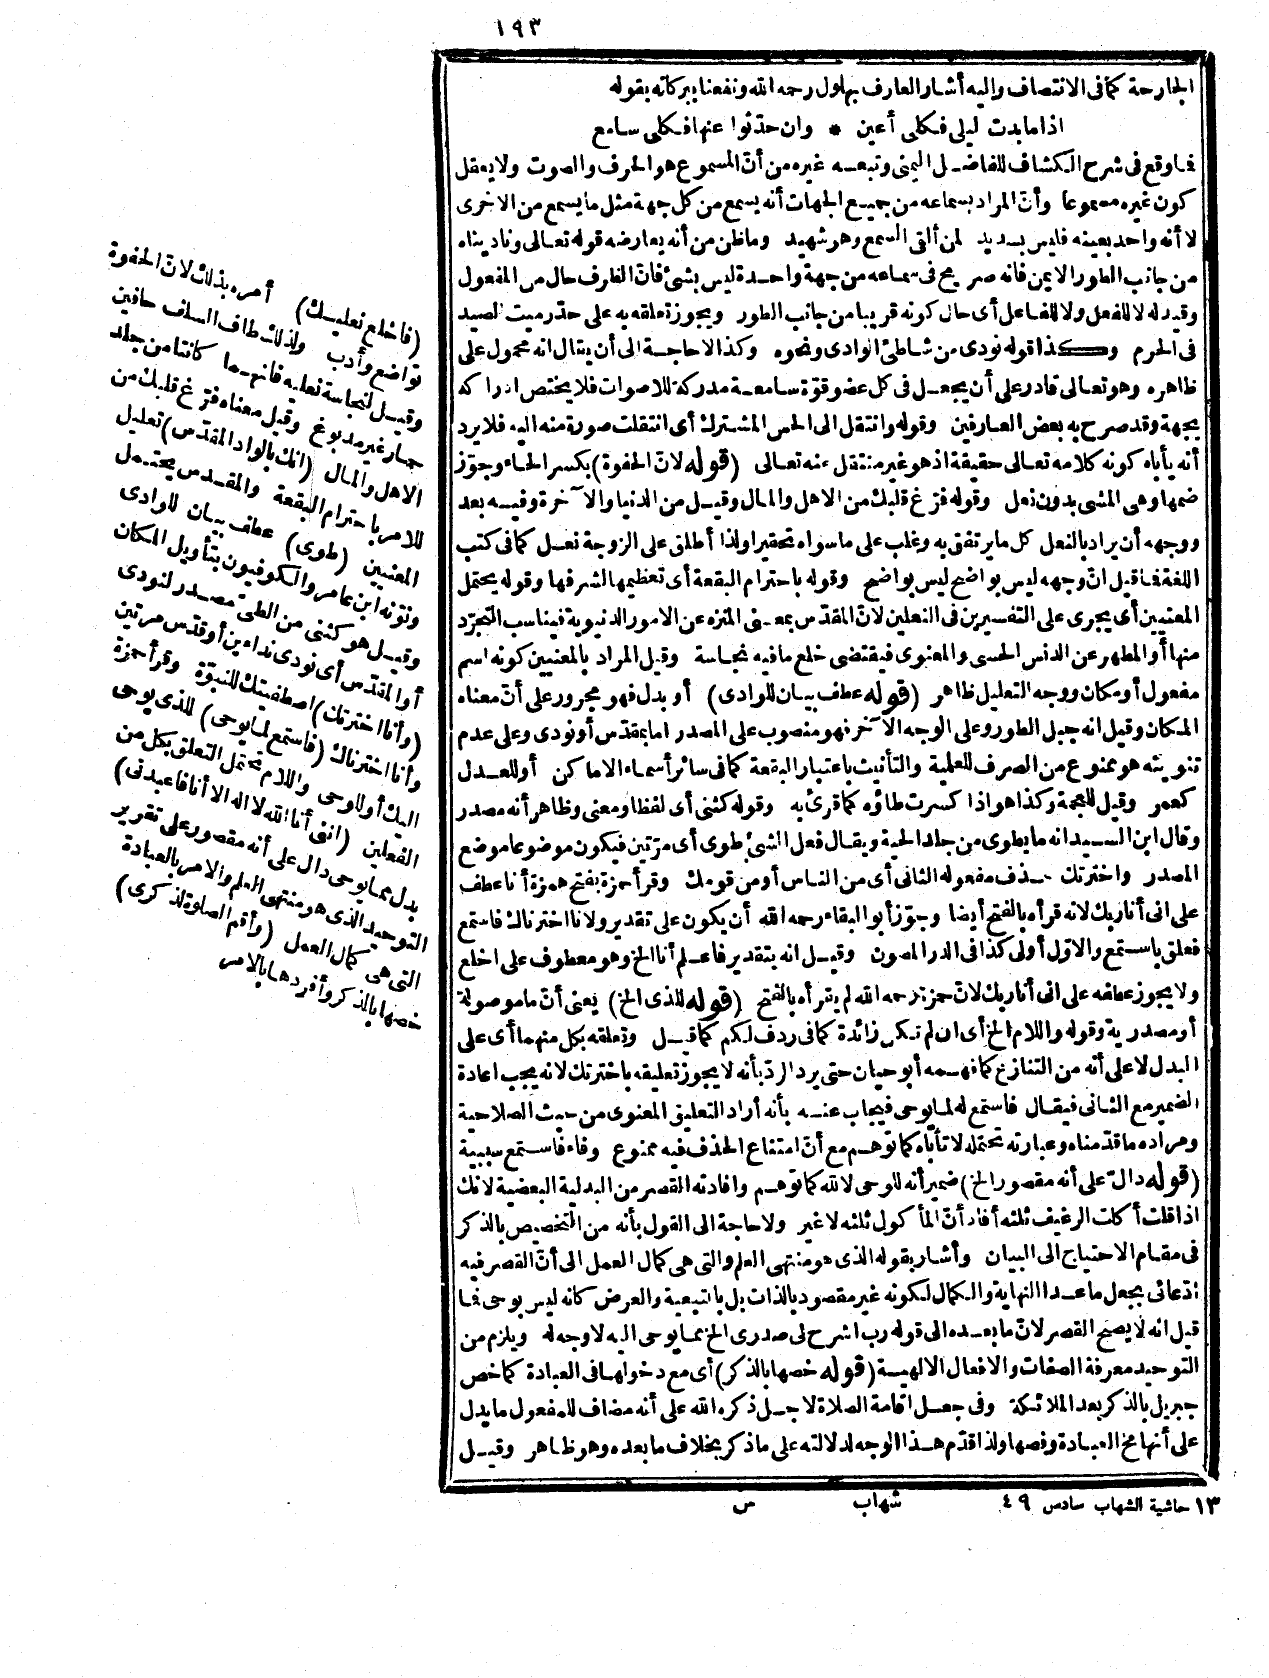 ١٩٣
الجارحة كما فى الانتصاف واليه أشار العارف بهلول رحمه الله ونفعنا ببركاته بقوله
اذا ما بدت ليلى فكلى أعين * وان حدثوا عنها فكلى سامع
فما وقع فى شرح الكشاف للفاضل اليمنى وتبعه غيره من أنّ المسموع هو الحرف والصوت ولا يعقل
كون غيره مسموعا وأنّ المراد بسماعه من جميع الجهات أنه يسمع من كل جهة مثل ما يسمع من الاخرى
لا أنه واحد بعينه فليس بسديد لمن ألقى السمع وهو شهيد وما ظن من أنه يعارضه قوله تعالى وناديناه
من جانب الطور الايمن فانه صريح فى سماعه من جهة واحدة ليس بشئ فانّ الظرف حال من المفعول
وقيد له لا للفعل ولا للفاعل أى حال كونه قريبا من جانب الطور ويجوز تعلقه به على حدّ رميت الصيد
فى الحرم وكذا قوله نودى من شاطئ الوادى ونحوه وكذا لا حاجة الى أن يقال انه محمول على
ظاهره وهو تعالى قادر على أن يجعل فى كل عضو قوّة سامعة مدركة للاصوات فلا يختص ادراكه
بجهة وقد صرح به بعض العارفين وقوله وانتقل الى الحس المشترك أى انتقلت صورة منه اليه فلا يرد
أنه يأباه كونه كلامه تعالى حقيقة اذ هو غير منتقل عنه تعالى (قوله لانّ الحفوة) بكسر الحاء وجوّز
ضمها وهى المشى بدون نعل وقوله فرّغ قلبك من الاهل والمال وقيل من الدنيا والآخرة وفيه بعد
ووجهه أن يراد بالنعل كل ما يرتفق به وغلب على ما سواه تحقيرا ولذا أطلق على الزوجة نعل كما فى كتب
اللغة فما قيل انّ وجهه ليس بواضح ليس بواضح وقوله باحترام البقعة أى تعظيمها لشرفها وقوله يحتمل
المعنيين أى يجرى على التفسيرين فى النعلين لانّ المقدّس بمعنى المنزه عن الامور الدنيوية فيناسب التجرّد
منها أو المطهر عن الدنس الحسى والمعنوى فيقتضى خلع ما فيه نجاسة وقيل المراد بالمعنيين كونه اسم
مفعول أو مكان ووجه التعليل ظاهر (قوله عطف بيان للوادى) أو بدل فهو مجرور على أنّ معناه
المكان وقيل انه جبل الطور وعلى الوجه الآخر فهو منصوب على المصدر اما بمقدّس أو نودى وعلى عدم
تنوينه هو ممنوع من الصرف للعلمية والتأنيث باعتبار البقعة كما فى سائر أسماء الاماكن أو للعدل
كعمر وقيل للعجمة وكذا هو اذا كسرت طاؤه كما قرئ به وقوله كثنى أى لفظا ومعنى وظاهر أنه مصدر
وقال ابن السيد انه ما يطوى من جلد الحية ويقال فعل الشئ طوى أى مرّتين فيكون موضوعا موضع
المصدر واخترتك حذف مفعوله الثانى أى من الناس أو من قومك وقرأ حمزة بفتح همزة أنا عطف
على انى أنا ربك لانه قرأه بالفتح أيضا وجوّز أبو البقاء رحمه الله أن يكون على تقدير ولانا اخترناك فاستمع
فعلق باستمع والاوّل أولى كذا فى الدر المصون وقيل انه بتقدير فاعلم أنا الخ وهو معطوف على اخلع
ولا يجوز عطفه على انى أنا ربك لانّ حمزة رحمه الله لم يقرأه بالفتح (قوله للذى الخ) يعنى أنّ ما موصولة
أو مصدرية وقوله واللام الخ أى ان لم تكن زائدة كما فى ردف لكم كما قيل وتعلقه بكل منهما أى على
البدل لا على أنه من التنازع كما فهمه أبو حيان حتى يرد الردّ بأنه لا يجوز تعليقه باخترتك لانه يجب اعادة
الضمير مع الثانى فيقال فاستمع له لما يوحى فيجاب عنه بأنه أراد التعليق المعنوى من حيث الصلاحية
ومراده ما قدّمناه وعبارته تحتمله لا تأباه كما توهم مع أنّ امتناع الحذف فيه ممنوع وفاء فاستمع سببية
(قوله دالّ على أنه مقصور الخ) ضمير أنه للوحى لا لله كما توهم وافادته القصر من البدلية البعضية لانك
اذا قلت أكلت الرغيف ثلثه أفاد أنّ المأكول ثلثه لا غير ولا حاجة الى القول بأنه من التخصيص بالذكر
فى مقام الاحتياج الى البيان وأشار بقوله الذى هو منتهى العلم والتى هى كمال العمل الى أنّ القصر فيه
ادّعائى بجعل ما عدا النهاية والكمال لكونه غير مقصود بالذات بل بالتبعية والعرض كانه ليس بوحى فما
قيل انه لا يصح القصر لانّ ما بعده الى قوله رب اشرح لى صدرى الخ مما يوحى اليه لا وجه له ويلزم من
التوحيد معرفة الصفات والافعال الالهية (قوله خصها بالذكر) أى مع دخولها فى العبادة كما خص
جبريل بالذكر بعد الملائكة وفى جعل اقامة الصلاة لاجل ذكره الله على أنه مضاف للمفعول ما يدل
على أنها مخ العبادة وفصها ولذا قدّم هذا الوجه لدلالته على ما ذكر بخلاف ما بعده وهو ظاهر وقيل
(فاخلع نعليك) أمره بذلك لانّ الحفوة
تواضع وأدب ولذلك طاف السلف حافين
وقيل لنجاسة نعليه فانهما كانتا من جلد
حمار غير مدبوغ وقيل معناه فرّغ قلبك من
الاهل والمال (انك بالواد المقدّس) تعليل
للامر باحترام البقعة والمقدس يحتمل
المعنيين (طوى) عطف بيان للوادى
ونوّنه ابن عامر والكوفيون بتأويل المكان
وقيل هو كثنى من الطىّ مصدر لنودى
أو المقدّس أى نودى نداءين أو قدّس مرتين
(وأنا اخترتك) اصطفيتك للنبوّة وقرأ حمزة
وأنا اخترناك (فاستمع لما يوحى) للذى يوحى
اليك أو للوحى واللام تحتمل التعلق بكل من
الفعلين (اننى أنا الله لا اله الا أنا فاعبدنى)
بدل مما يوحى دال على أنه مقصور على تقرير
التوحيد الذى هو منتهى العلم والامر بالعبادة
التى هى كمال العمل (وأقم الصلوة لذكرى)
خصها بالذكر وأفردها بالامر
١٣ حاشية الشهاب سادس ٤٩ شهاب س